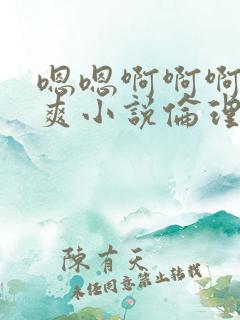 嗯嗯啊啊啊
爽小説倫理
陳有天
未经同意禁止转载